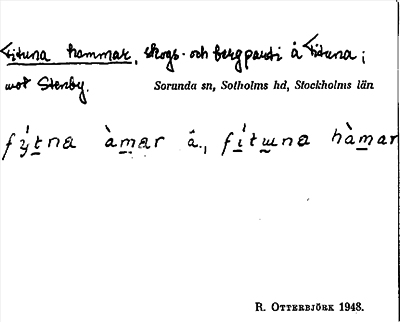 Fituna hammar, skogs- och bergparti å Fituna;
mot Stenby.
Sorunda sn, Sotholms hd, Stockholms län
fýtna àmar â., fítuna hàmar
R. OTTERBJÖRK 1948.